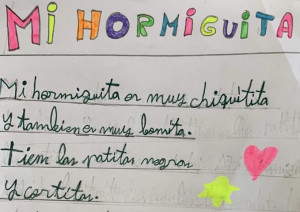 MI HORMIGUITA
Mi hormiguita es muy chiquitita
y tambien es muy bonita.
Tiene las patitas negras
y cortitas.